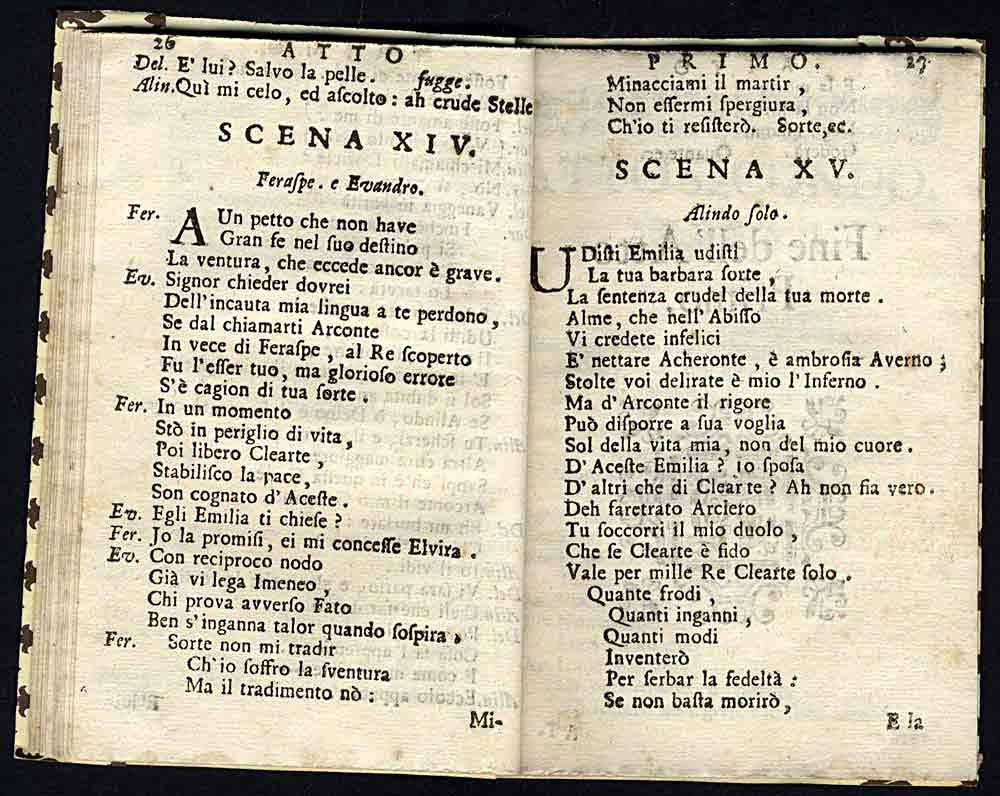 26
ATTO
Del. E' lui? Salvo la pelle. fugge.
Alin. Quì mi celo, ed aſcolto: ah crude Stelle
SCENA XIV.
Feraſpe. e Evandro.
Fer. AUn petto che non have
Gran fe nel ſuo deſtino
La ventura, che eccede ancor è grave.
Ev. Signor chieder dovrei
Dell'incauta mia lingua a te perdono,
Se dal chiamarti Arconte
In vece di Feraſpe, al Re ſcoperto
Fu l'eſſer tuo, ma glorioſo errore
S'è cagion di tua ſorte.
Fer. In un momento
Stò in periglio di vita,
Poi libero Clearte,
Stabiliſco la pace,
Son cognato d'Aceſte.
Ev. Egli Emilia ti chieſe?
Fer. Jo la promiſi, ei mi conceſſe Elvira.
Ev. Con reciproco nodo
Già vi lega Imeneo,
Chi prova avverſo Fato
Ben s'inganna talor quando ſoſpira.
Fer. Sorte non mi tradir
Ch'io ſoffro la ſventura
Ma il tradimento nò:
Mi-
PRIMO.
27
Minacciami il martir,
Non eſſermi ſpergiura,
Ch'io ti reſiſterò. Sorte,ec.
SCENA XV.
Alindo ſolo.
UDiſti Emilia udiſti
La tua barbara ſorte,
La ſentenza crudel della tua morte.
Alme, che nell'Abiſſo
Vi credete infelici
E' nettare Acheronte, è ambroſia Averno;
Stolte voi delirate è mio l'Inferno.
Ma d'Arconte il rigore
Può diſporre a ſua voglia
Sol della vita mia, non del mio cuore.
D'Aceſte Emilia? io ſpoſa
D'altri che di Clearte? Ah non fia vero.
Deh faretrato Arciero
Tu ſoccorri il mio duolo,
Che ſe Clearte è fido
Vale per mille Re Clearte ſolo.
Quante frodi,
Quanti inganni,
Quanti modi
Inventerò
Per ſerbar la fedeltà:
Se non baſta morirò,
E la